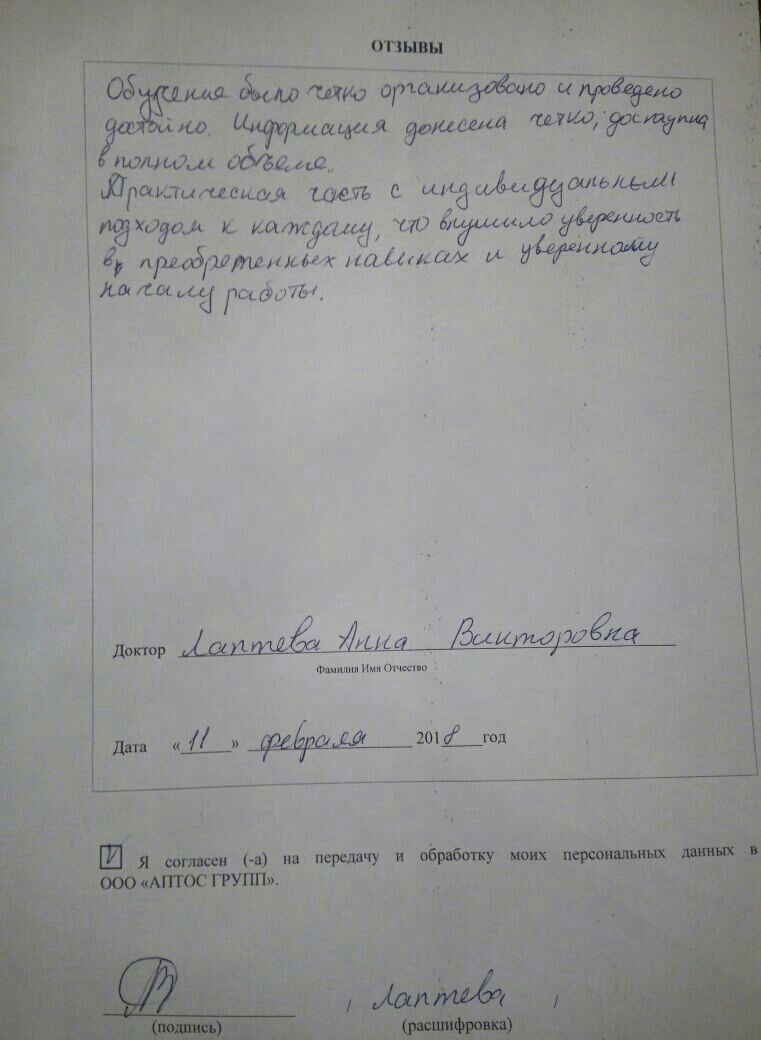 ОТЗЫВЫ
Обучение было четко организовано и проведено
достойно. Информация донесена четко, доступна
в полном объеме.
Практическая часть с индивидуальным
подходом к каждому, что внушило уверенность
в преобретенных навыках и уверенному
началу работы.
Доктор Лаптева Анна Викторовна
Фамилия Имя Отчество
Дата «11» февраля 2018 год
V Я согласен (-а) на передачу и обработку моих персональных данных в
ООО «АПТОС ГРУПП».
/ Лаптева /
(подпись) (расшифровка)